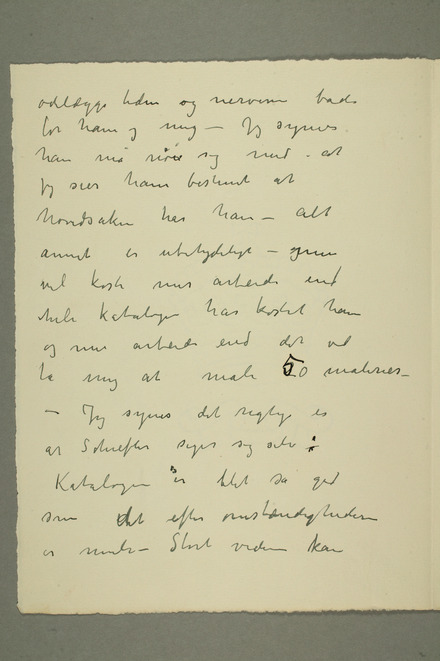 ødelægge tiden og nerverne både
for ham og mig – Jeg synes
han må nøie sig med – at
Jeg sier ham bestemt at
hovedsaken har han – alt
annet er ubetydeligt –
vil koste mer arbeide end
hele katalogen har kostet ham
og mer arbeide end det vil
ta mig at male 50 malerier –
– Jeg synes det rigtige er
at Schiefler siger sig selv
Katalogen er blet så god
som det efter omstændighederne
er mulig – Stort videre kan